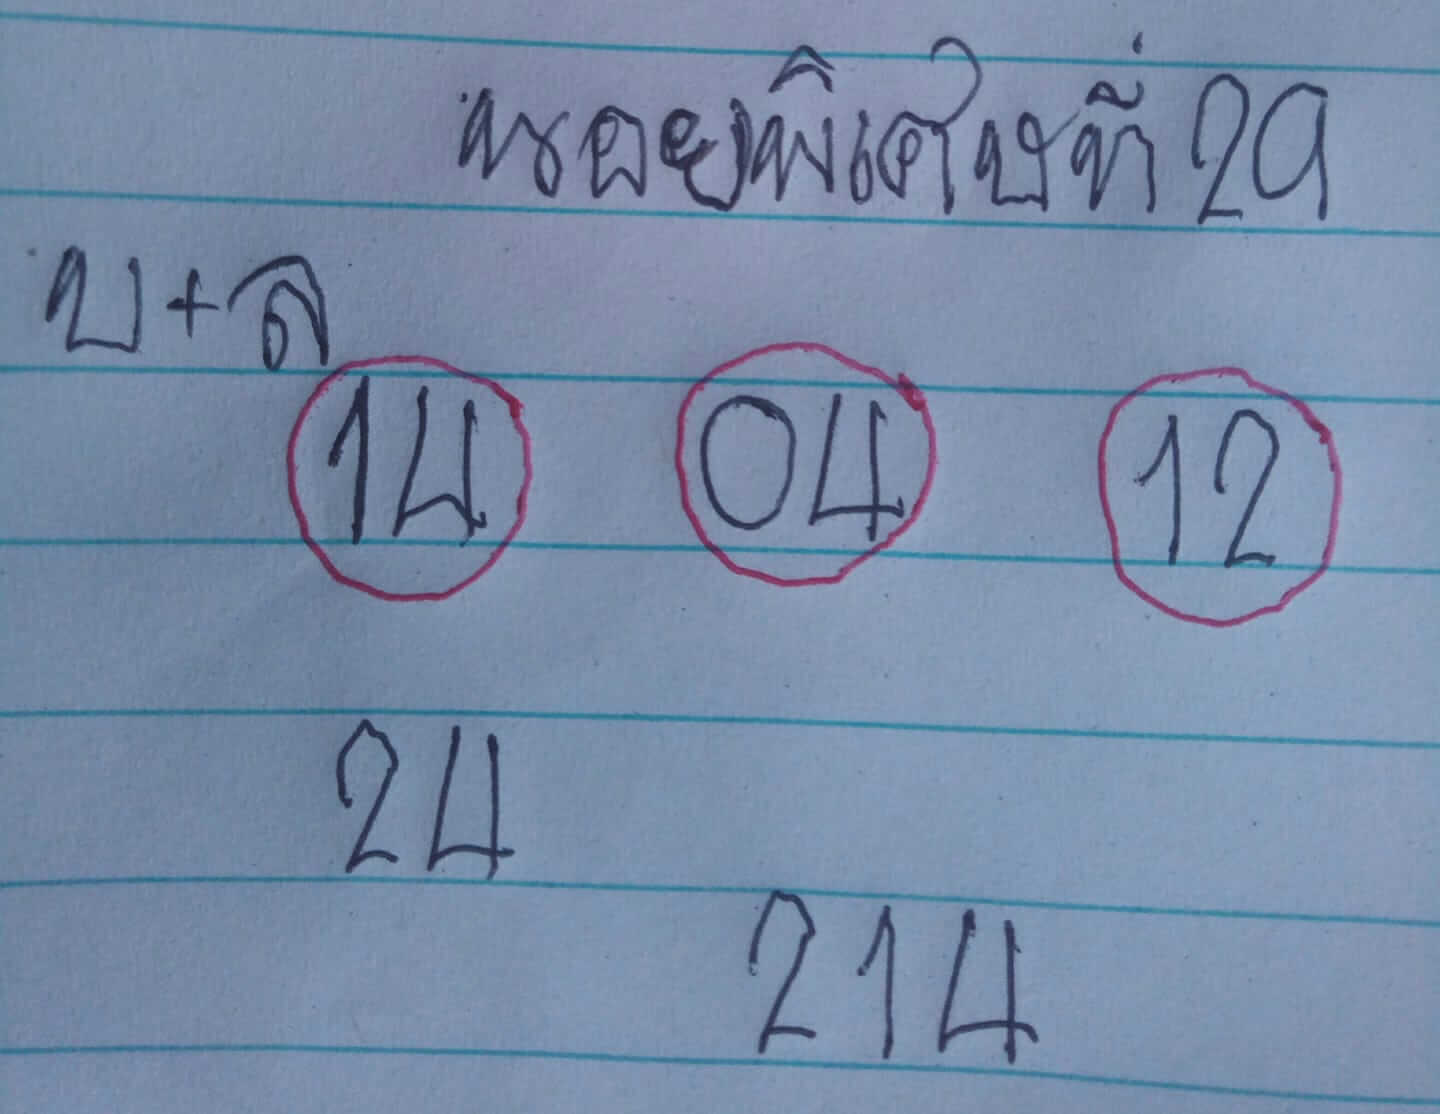 หรอยพิเศษที่ 29
บ+ล
14 04 12
24
214